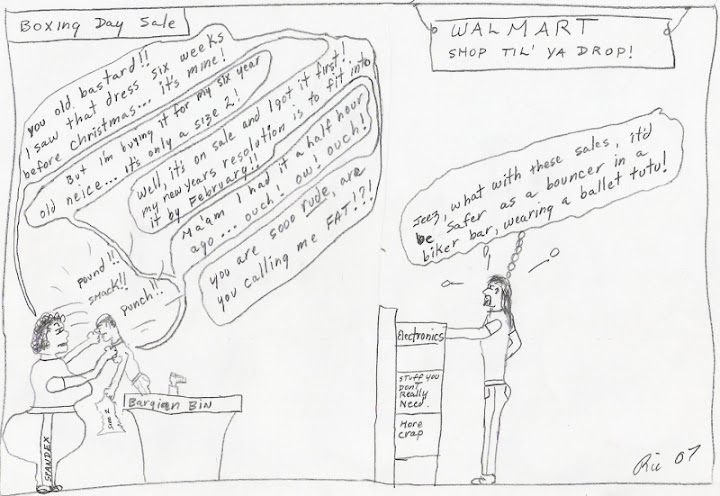 Boxing Day Sale
you old bastard!!
I saw that dress six weeks
before christmas... it's mine!
But I'm buying it for my six year
old neice... it's only a size 2!
Well, it's on sale and I got it first!
my new years resolution is to fit into
it by February!!
Ma'am I had it a half hour
ago... ouch! ow! ouch!
you are sooo rude, are
you calling me FAT!?!
pound!!
smack!!
punch!!
SPANDEX
Size 2
Bargien Bin
WALMART
SHOP TIL' YA DROP!
Jeez, what with these sales, it'd
be safer as a bouncer in a
biker bar, wearing a ballet tutu!
Electronics
Stuff you
Don't
Really
Need.
More
crap
Ric 07